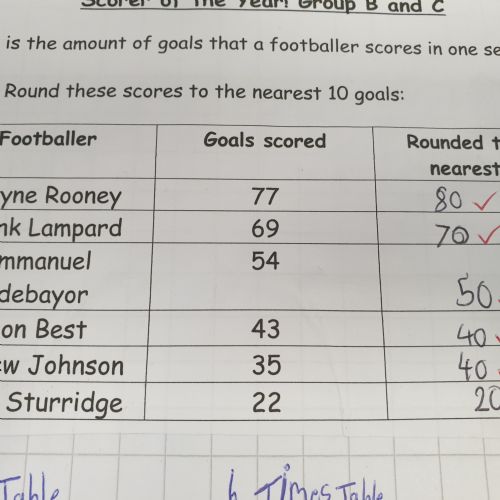 Scorer of The Year! Group B and C
is the amount of goals that a footballer scores in one se
Round these scores to the nearest 10 goals:
Footballer Goals scored Rounded t
nearest
yne Rooney 77 80 ✓
nk Lampard 69 70 ✓
mmanuel 54
debayor 50
on Best 43 40
ew Johnson 35 40
Sturridge 22 20
Table 6 Times Table